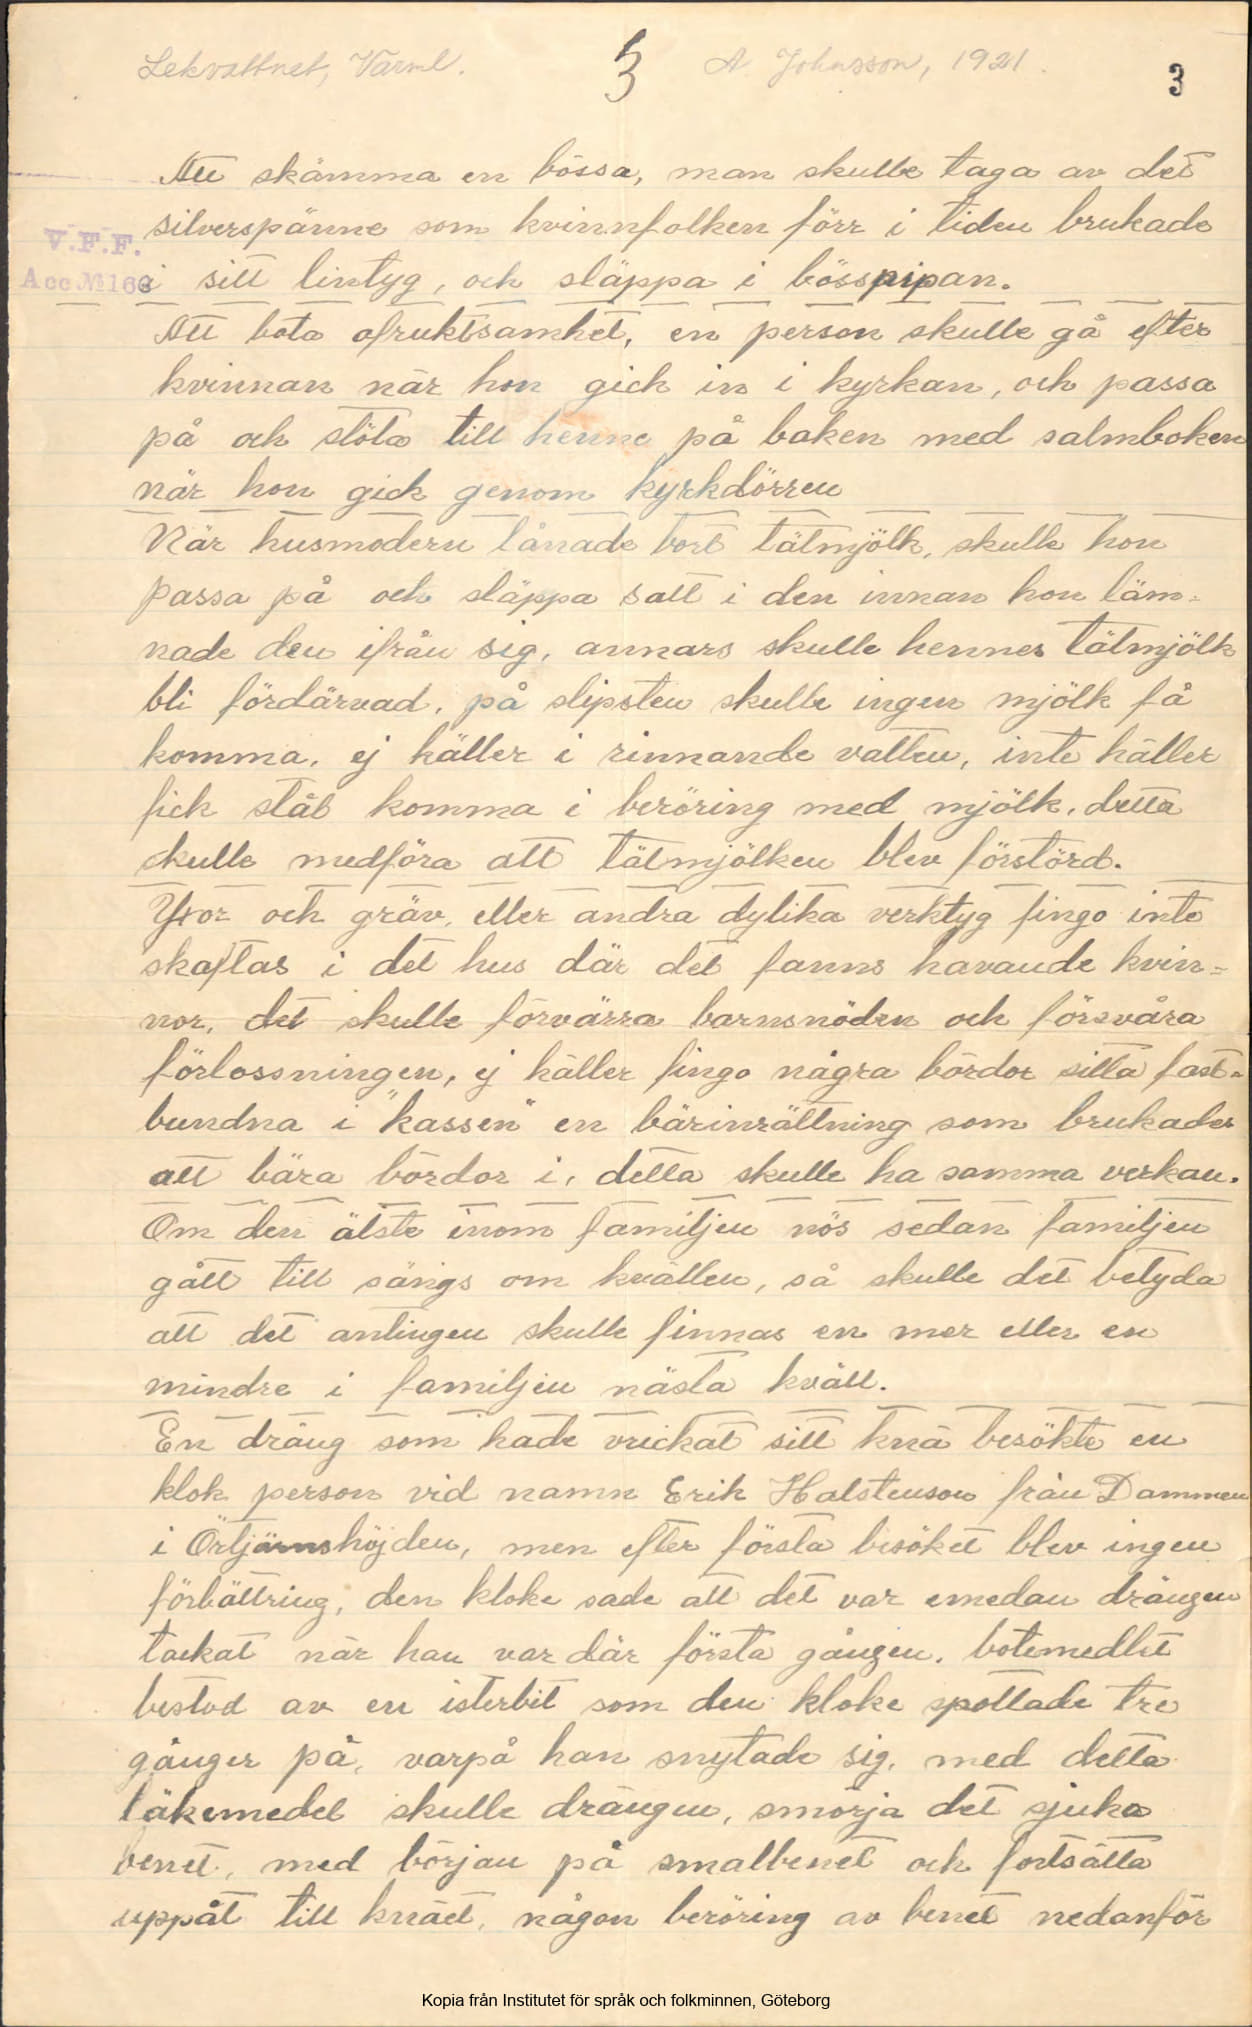 Lekvattnet, Värml. 3 A Johnsson, 1921. 3
Att skämma en bössa, man skulle taga av det
silverspänne som kvinnfolken förr i tiden brukade
V.F.F.
Acc. № 166
i sitt lintyg, och släppa i bösspipan.
Att bota ofruktsamhet, en person skulle gå efter
kvinnan när hon gick in i kyrkan, och passa
på och stöta till henne på baken med salmboken
när hon gick genom kyrkdörren
När husmodern lånade bort tätmjölk, skulle hon
passa på och släppa salt i den innan hon läm=
nade den ifrån sig, annars skulle hennes tätmjölk
bli fördärvad, på slipsten skulle ingen mjölk få
komma, ej häller i rinnande vatten, inte häller
fick stål komma i beröring med mjölk, detta
skulle medföra att tätmjölken blev förstörd.
Yxor och gräv, eller andra dylika verktyg fingo inte
skaftas i det hus där det fanns havande kvin=
nor, det skulle förvärra barnsnöden och försvåra
förlossningen, ej häller fingo några bördor sitta fast=
bundna i "kassen" en bärinrättning som brukades
att bära bördor i, detta skulle ha samma verkan.
Om den älste inom familjen nös sedan familjen
gått till sängs om kvällen, så skulle det betyda
att det antingen skulle finnas en mer eller en
mindre i familjen nästa kväll.
En dräng som hade vrickat sitt knä besökte en
klok person vid namn Erik Halstenson från Dammen
i Örtjärnshöjden, men efter första besöket blev ingen
förbättring, den kloke sade att det var emedan drängen
tackat när han var där första gången. botemedlet
bestod av en isterbit som den kloke spottade tre
gånger på, varpå han snytade sig, med detta
läkemedel skulle drängen, smörja det sjuka
benet, med början på smalbenet och fortsätta
uppåt till knäet, någon beröring av benet nedanför
Kopia från Institutet för språk och folkminnen, Göteborg